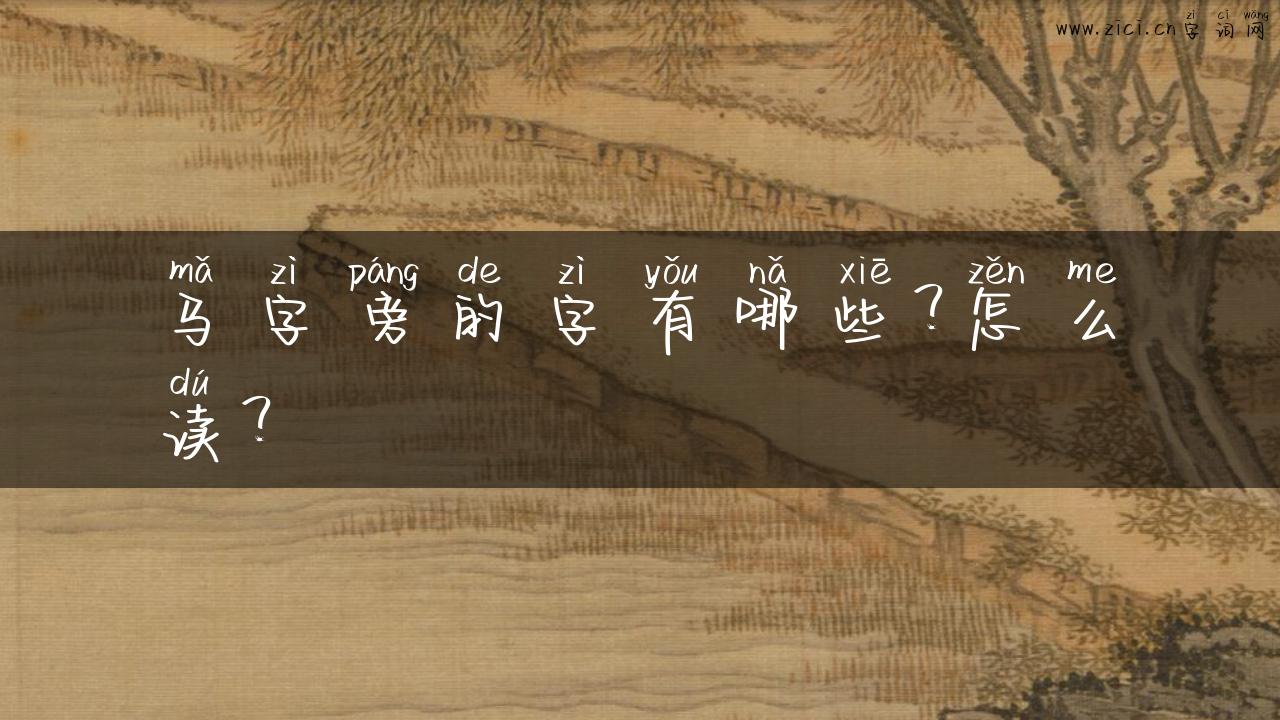 zì cí wǎng
www.zici.cn字词网
mǎ zì páng de zì yǒu nǎ xiē zěn me
马字旁的字有哪些?怎么
dú
读?